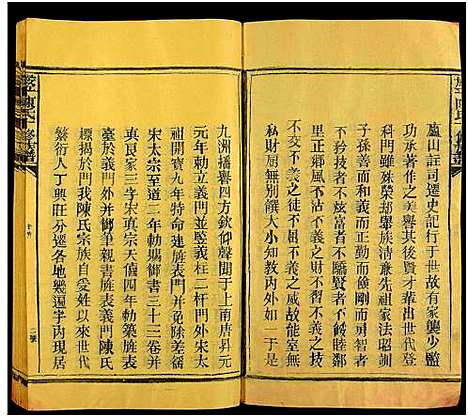 廬山註司遷史記行于世故有家襲少監
功承著作之美譽其後
科門雖殊榮却舉族清廉先祖家法昭訓
子孫善而和義而正動而儉剛而貞智而
不矜技者不害賢者不驕貧者不餒睦鄰
里正鄉風不仗不義之勢不習不義之技
不貪不義之財不畏不義之威故能室無
私財厨無別饌大小知教內外如一于是
九洲播譽四方欽仰聲聞于上南唐昇元
元年勅立義門並竪義柱二杆門外宋太
祖開寶九年特命建旌表門閭除差徭
宋太宗至道二年勅賜御書三十三卷并
真良家三字宋真宗天僖四年勅築旌表
臺於義門并御筆親書義門陳氏
標揚於門我陳氏宗族自爰姓以來世代
繁衍人丁興旺分遷各地幾遍宇內現居